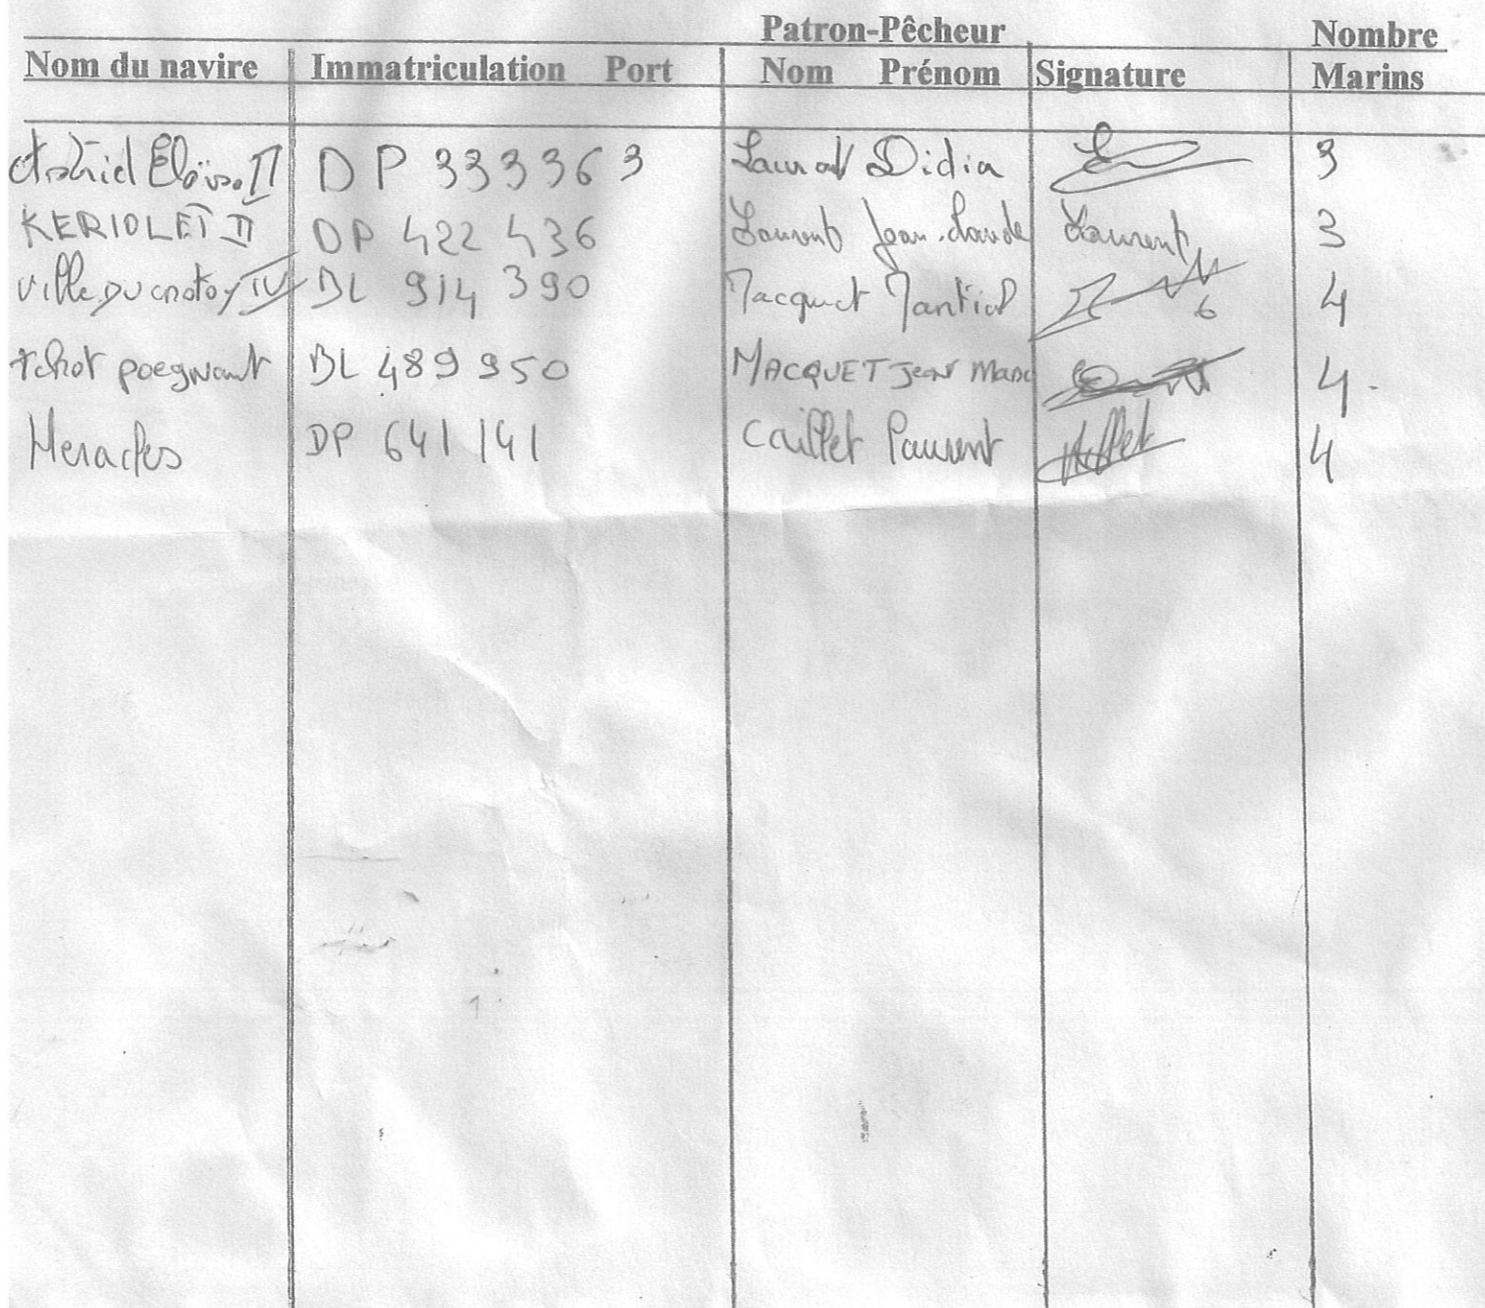 Patron-Pêcheur Nombre
Nom du navire Immatriculation Port Nom Prénom Signature Marins
Astrid Eloïse II DP 333363 Laurent Didier 3
KERIOLET II DP 422 436 Laurent Jean.Claude Laurent 3
Ville Du crotoy IV BL 914 390 Macquet Martial 4
tchot poegnant BL 489 950 MACQUET Jean Marc 4
Heracles DP 641 141 Caillet Laurent 4